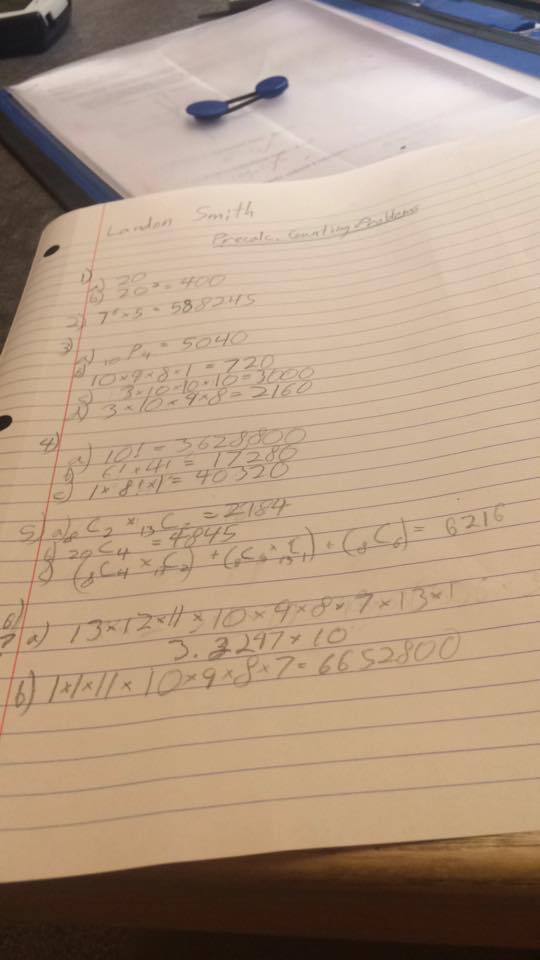 Landon Smith
Precalc. Counting Problems
1) a) 20
b) 20² = 400
2) 7⁶ × 5 = 588245
3)
a) 10P4 = 5040
b) 10×9×8×1 = 720
c) 3×10×10×10 = 3000
d) 3×10×9×8 = 2160
4)
a) 10! = 3628800
b) 6! × 4! = 17280
c) 1×8!×1 = 40320
5) a) 8C2 × 13C = 2184
b) 20C4 = 4845
c) (8C4 × 13C2) + (8C5 × 13C1) + (8C6) = 6216
6)
7 a) 13×12×11×10×9×8×7×13×1
3.3247×10
b) 1×1×11×10×9×8×7 = 6652800